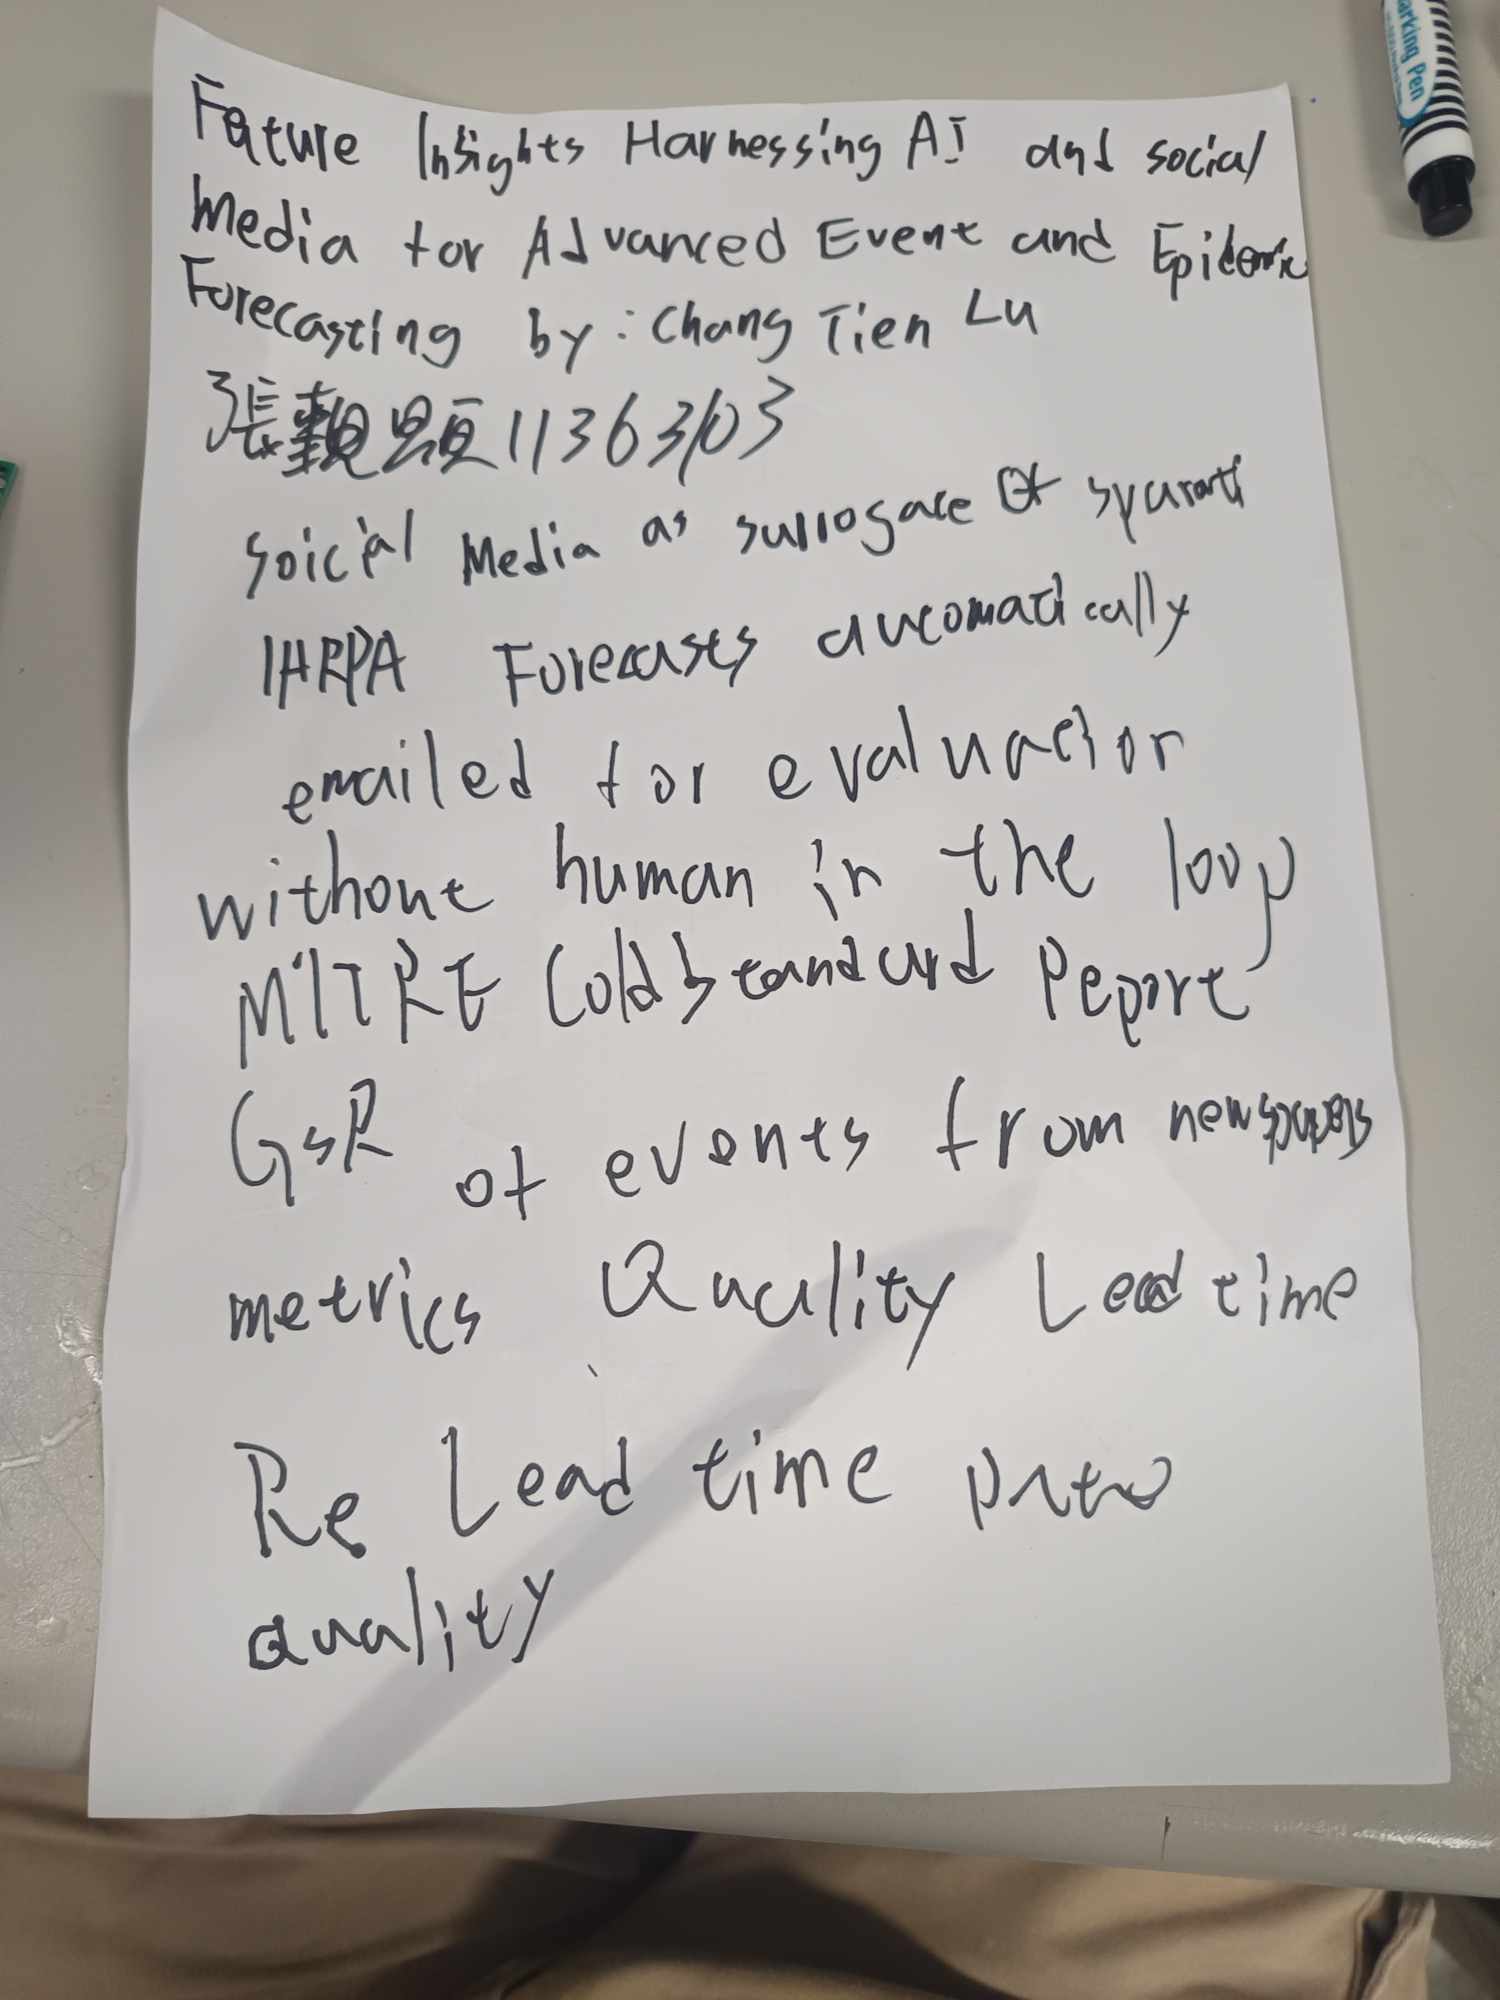 arking Pen
Feature Insights Harnessing AI and social
Media for Advanced Event and Epidemic
Forecasting by: Chang Tien Lu
張 顕 11363103
Soicial Media as surrogate Of
IARPA Forecases automatically
emailed for evaluation
without human in the loop
MITRE Gold Standard Report
GSR of events from newspapers
metrics Quality Lead time
Re Lead time
quality